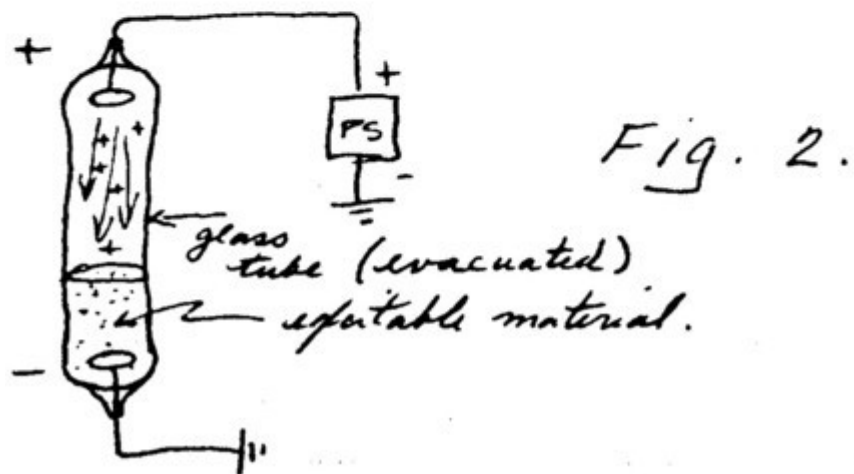 +
+
PS
-
Fig. 2.
+
+
+
+
+
glass
tube (evacuated)
excitable material.
-